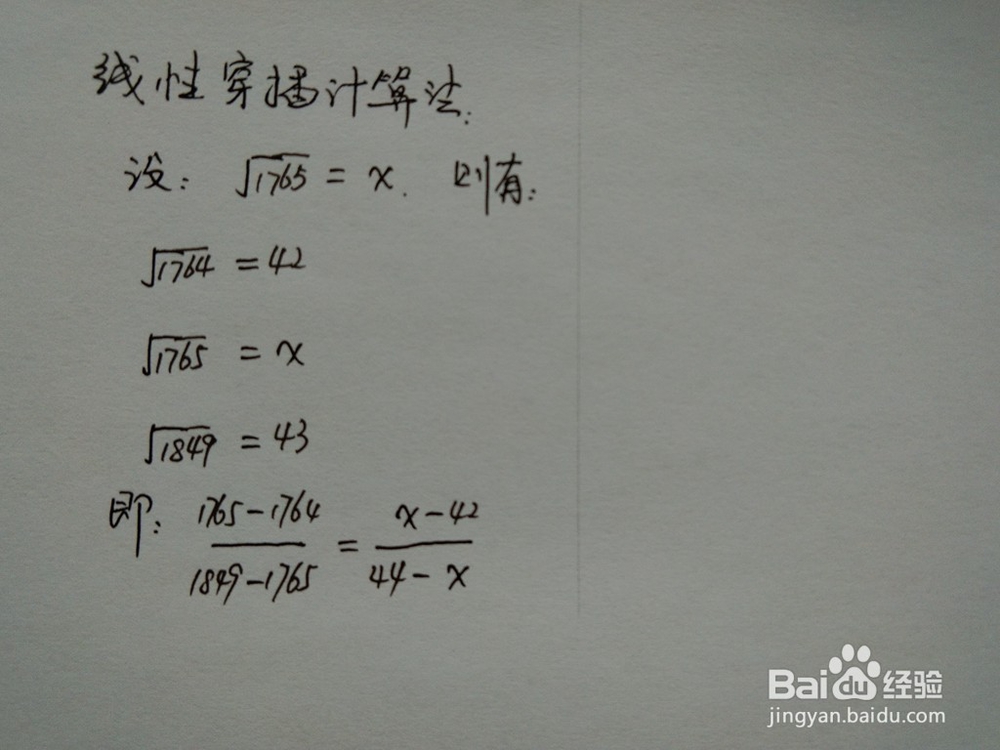 线性穿插计算法:
设: √1765 = x. 则有:
√1764 = 42
√1765 = x
√1849 = 43
即: (1765-1764)/(1849-1765) = (x-42)/(44-x)
Baidu经验
jingyan.baidu.com